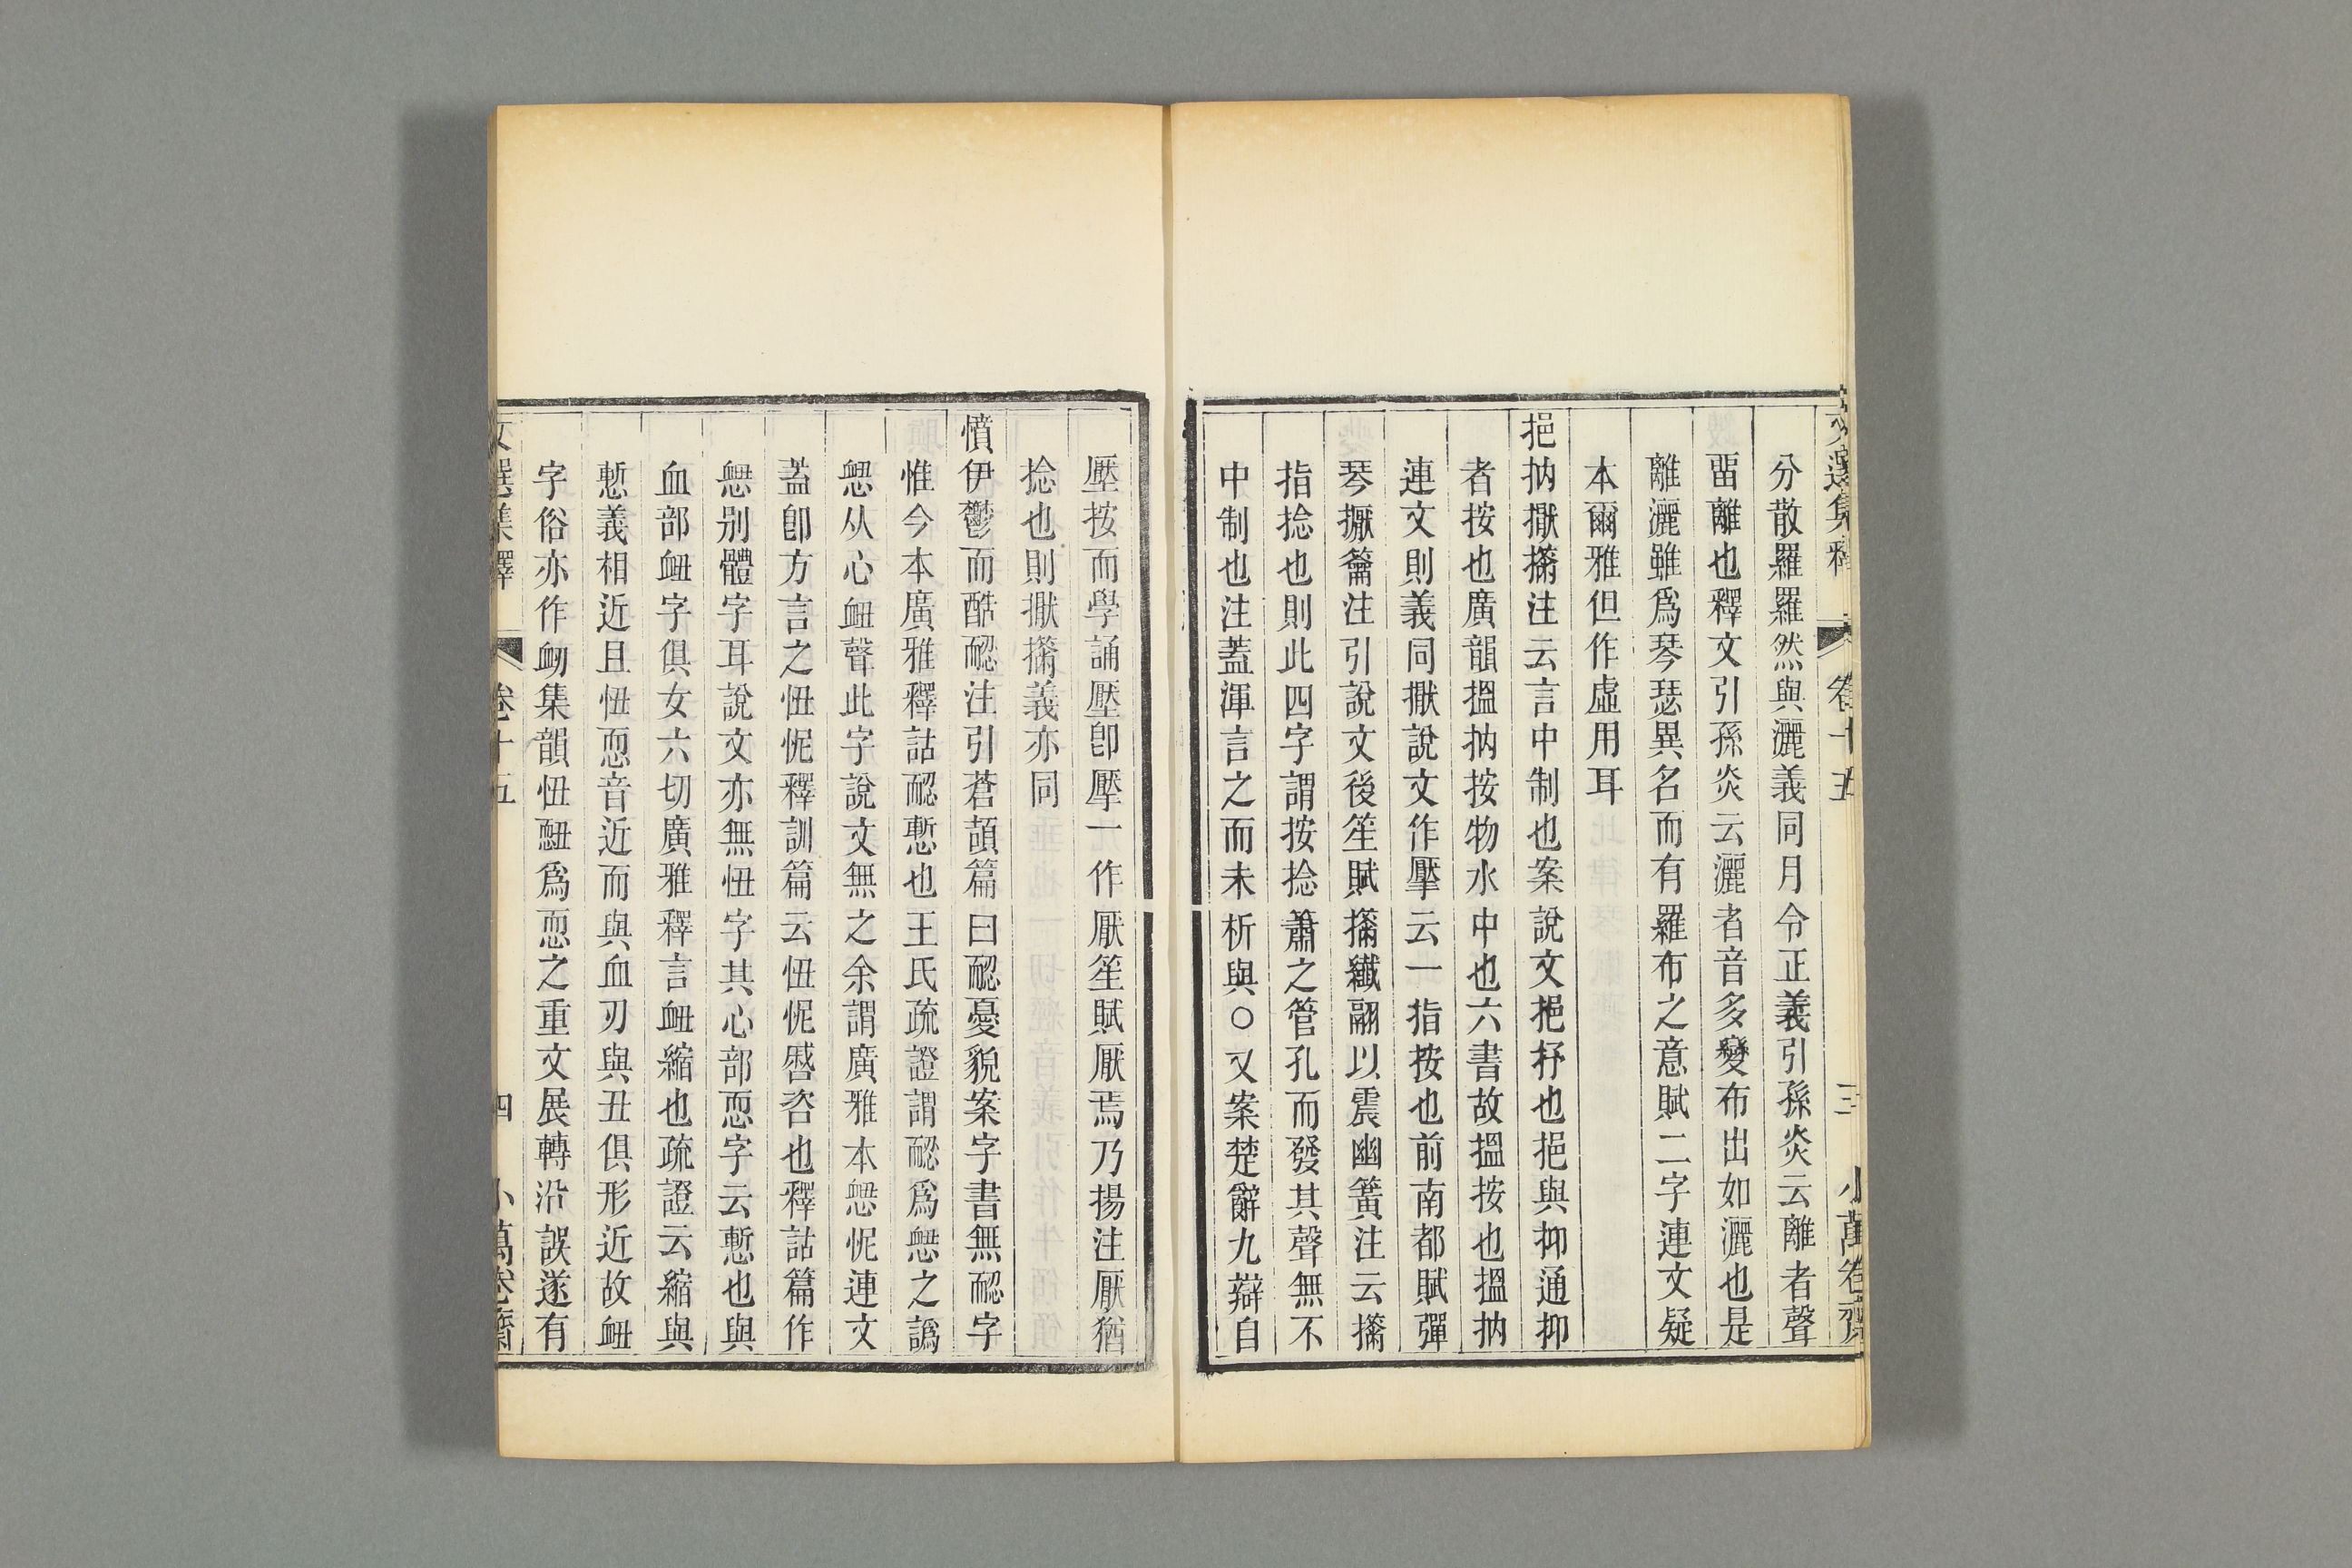 文選集釋 卷十五 三 小萬卷齋
分散羅羅然與灑義同月令正義引孫炎云離者聲
畱離也釋文引孫炎云灑者音多變布出如灑也是
離灑雖爲琴瑟異名而有羅布之意賦二字連文疑
本爾雅但作虛用耳
挹抐擫㩎注云言中制也案說文挹抒也挹與抑通抑
者按也廣韻搵抐按物水中也六書故搵按也搵抐
連文則義同擫說文作擪云一指按也前南都賦彈
琴擫籥注引說文後笙賦㩎纖翮以震幽簧注云㩎
指捻也則此四字謂按捻簫之管孔而發其聲無不
中制也注蓋渾言之而未析與○又案楚辭九辯自
壓按而學誦壓卽擪一作厭笙賦厭焉乃揚注厭猶
捻也則擫㩎義亦同
憤伊鬱而酷㥾注引蒼頡篇曰㥾憂貌案字書無㥾字
惟今本廣雅釋詁㥾慙也王氏疏證謂㥾爲𢛴之譌
𢛴从心衄聲此字說文無之余謂廣雅本𢛴怩連文
蓋卽方言之忸怩釋訓篇云忸怩慼咨也釋詁篇作
𢛴別體字耳說文亦無忸字其心部恧字云慙也與
血部衄字俱女六切廣雅釋言衄縮也疏證云縮與
慙義相近且忸恧音近而與血刃與丑俱形近故衄
字俗亦作衂集韻忸䶊爲恧之重文展轉沿誤遂有
文選集釋 卷十五 四 小萬卷齋